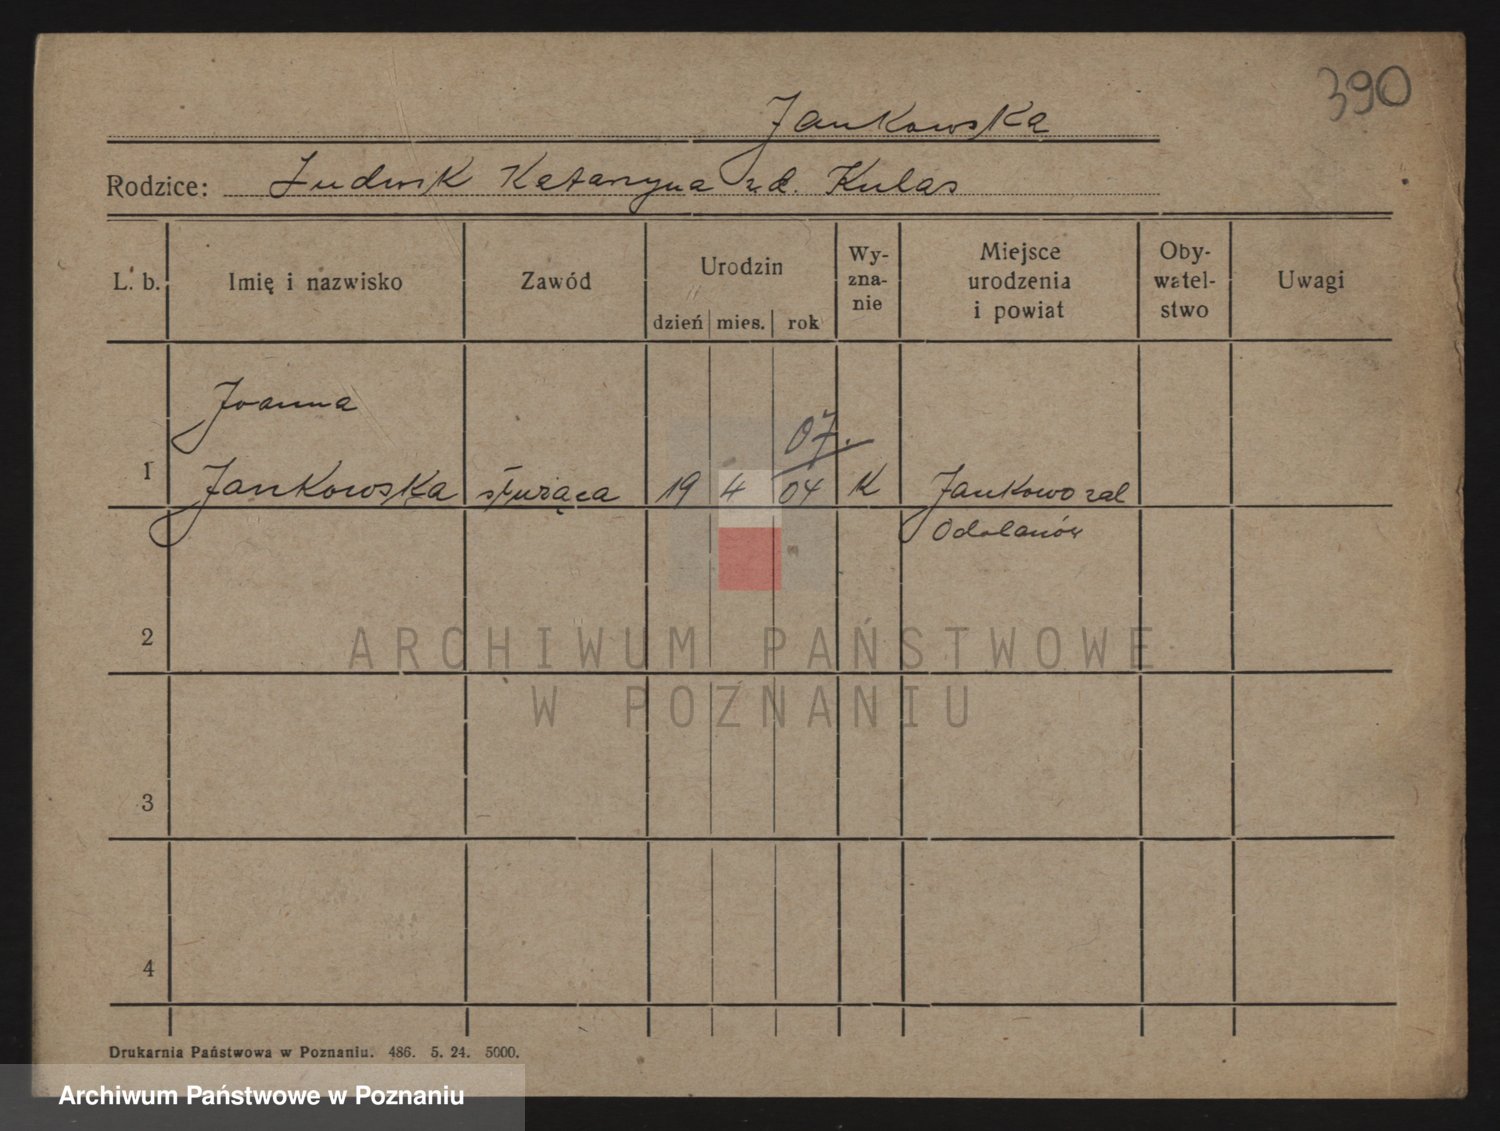 390
Jankowska
Rodzice: Ludwik Katarzyna zd. Kulas
L. b. Imię i nazwisko Zawód Urodzin dzień mies. rok Wy-zna-nie Miejsce urodzenia i powiat Oby-watel-stwo Uwagi
Joanna
07.
1 Jankowska służąca 19 4 04 K Jankowo zal
Odolanów
2
ARCHIWUM PAŃSTWOWE
W POZNANIU
3
4
Drukarnia Państwowa w Poznaniu. 486. 5. 24. 5000.
Archiwum Państwowe w Poznaniu